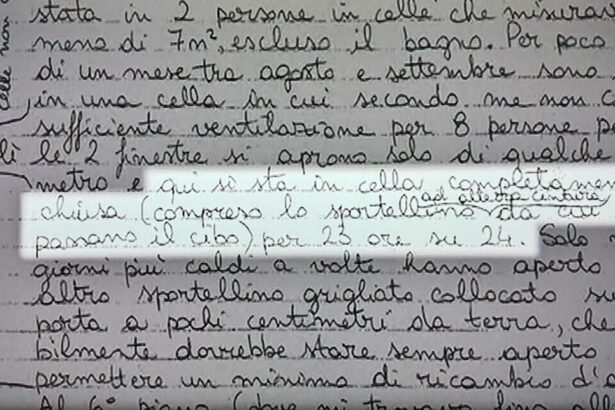 stata in 2 persone in celle che misuravan
meno di 7m², escluso il bagno. Per poco
di un mese tra agosto e settembre sono
in una cella in cui secondo me non c
sufficiente ventilazione per 8 persone pe
lì le 2 finestre si aprono solo di qualche
metro e qui si sta in cella completamen
ad altezza cintura
chiusa (compreso lo sportellino da cui
passano il cibo) per 23 ore su 24. Solo
giorni più caldi a volte hanno aperto
altro sportellino grigliato collocato su
porta a pochi centimetri da terra, che
bilmente dovrebbe stare sempre aperto
permettere un minimo di ricambio d'a
Al 6° piano (dove mi trovavo fino all
celle non